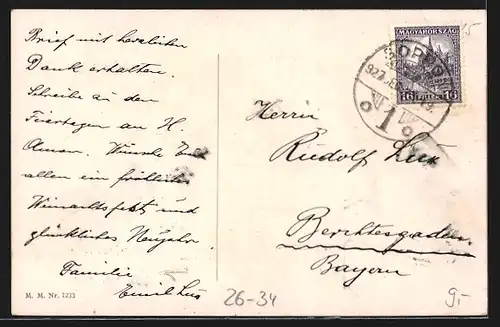 Brief mit herzlichen
Dank erhalten.
Schreibe an den
Feiertagen an H.
Wünsche
allen ein fröhliches
Weinachtsfest und
glückliches Neujahr.
Familie
Emil
M. M. Nr. 1233
MAGYARORSZÁG
16 16
SOPRON
927
1
15
Herrn
Rudolf
Berchtesgaden
Bayern
26-34
9,-